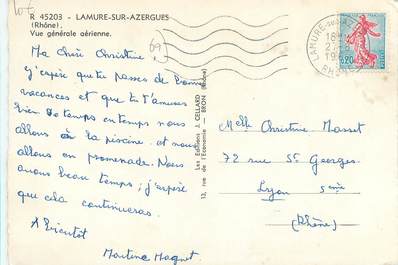 R 45203 - LAMURE-SUR-AZERGUES
(Rhône).
Vue générale aérienne.
69
Ma chère Christine,
J'espère que tu passes de bonnes
vacances et que tu t'amuses
bien. De temps en temps nous
allons à la piscine et nous
allons en promenade. Nous
avons beau temps ; j'espère
que cela continueras.
A bientôt
Martine Magnet
Les Editions J. CELLARD
13, rue de l'Economie — BRON (Rhône)
LAMURE-SUR-AZ
18
27
19
RHONE
0,20
Melle Christine Masset
72 rue St Georges
Lyon 5ème
(Rhône)